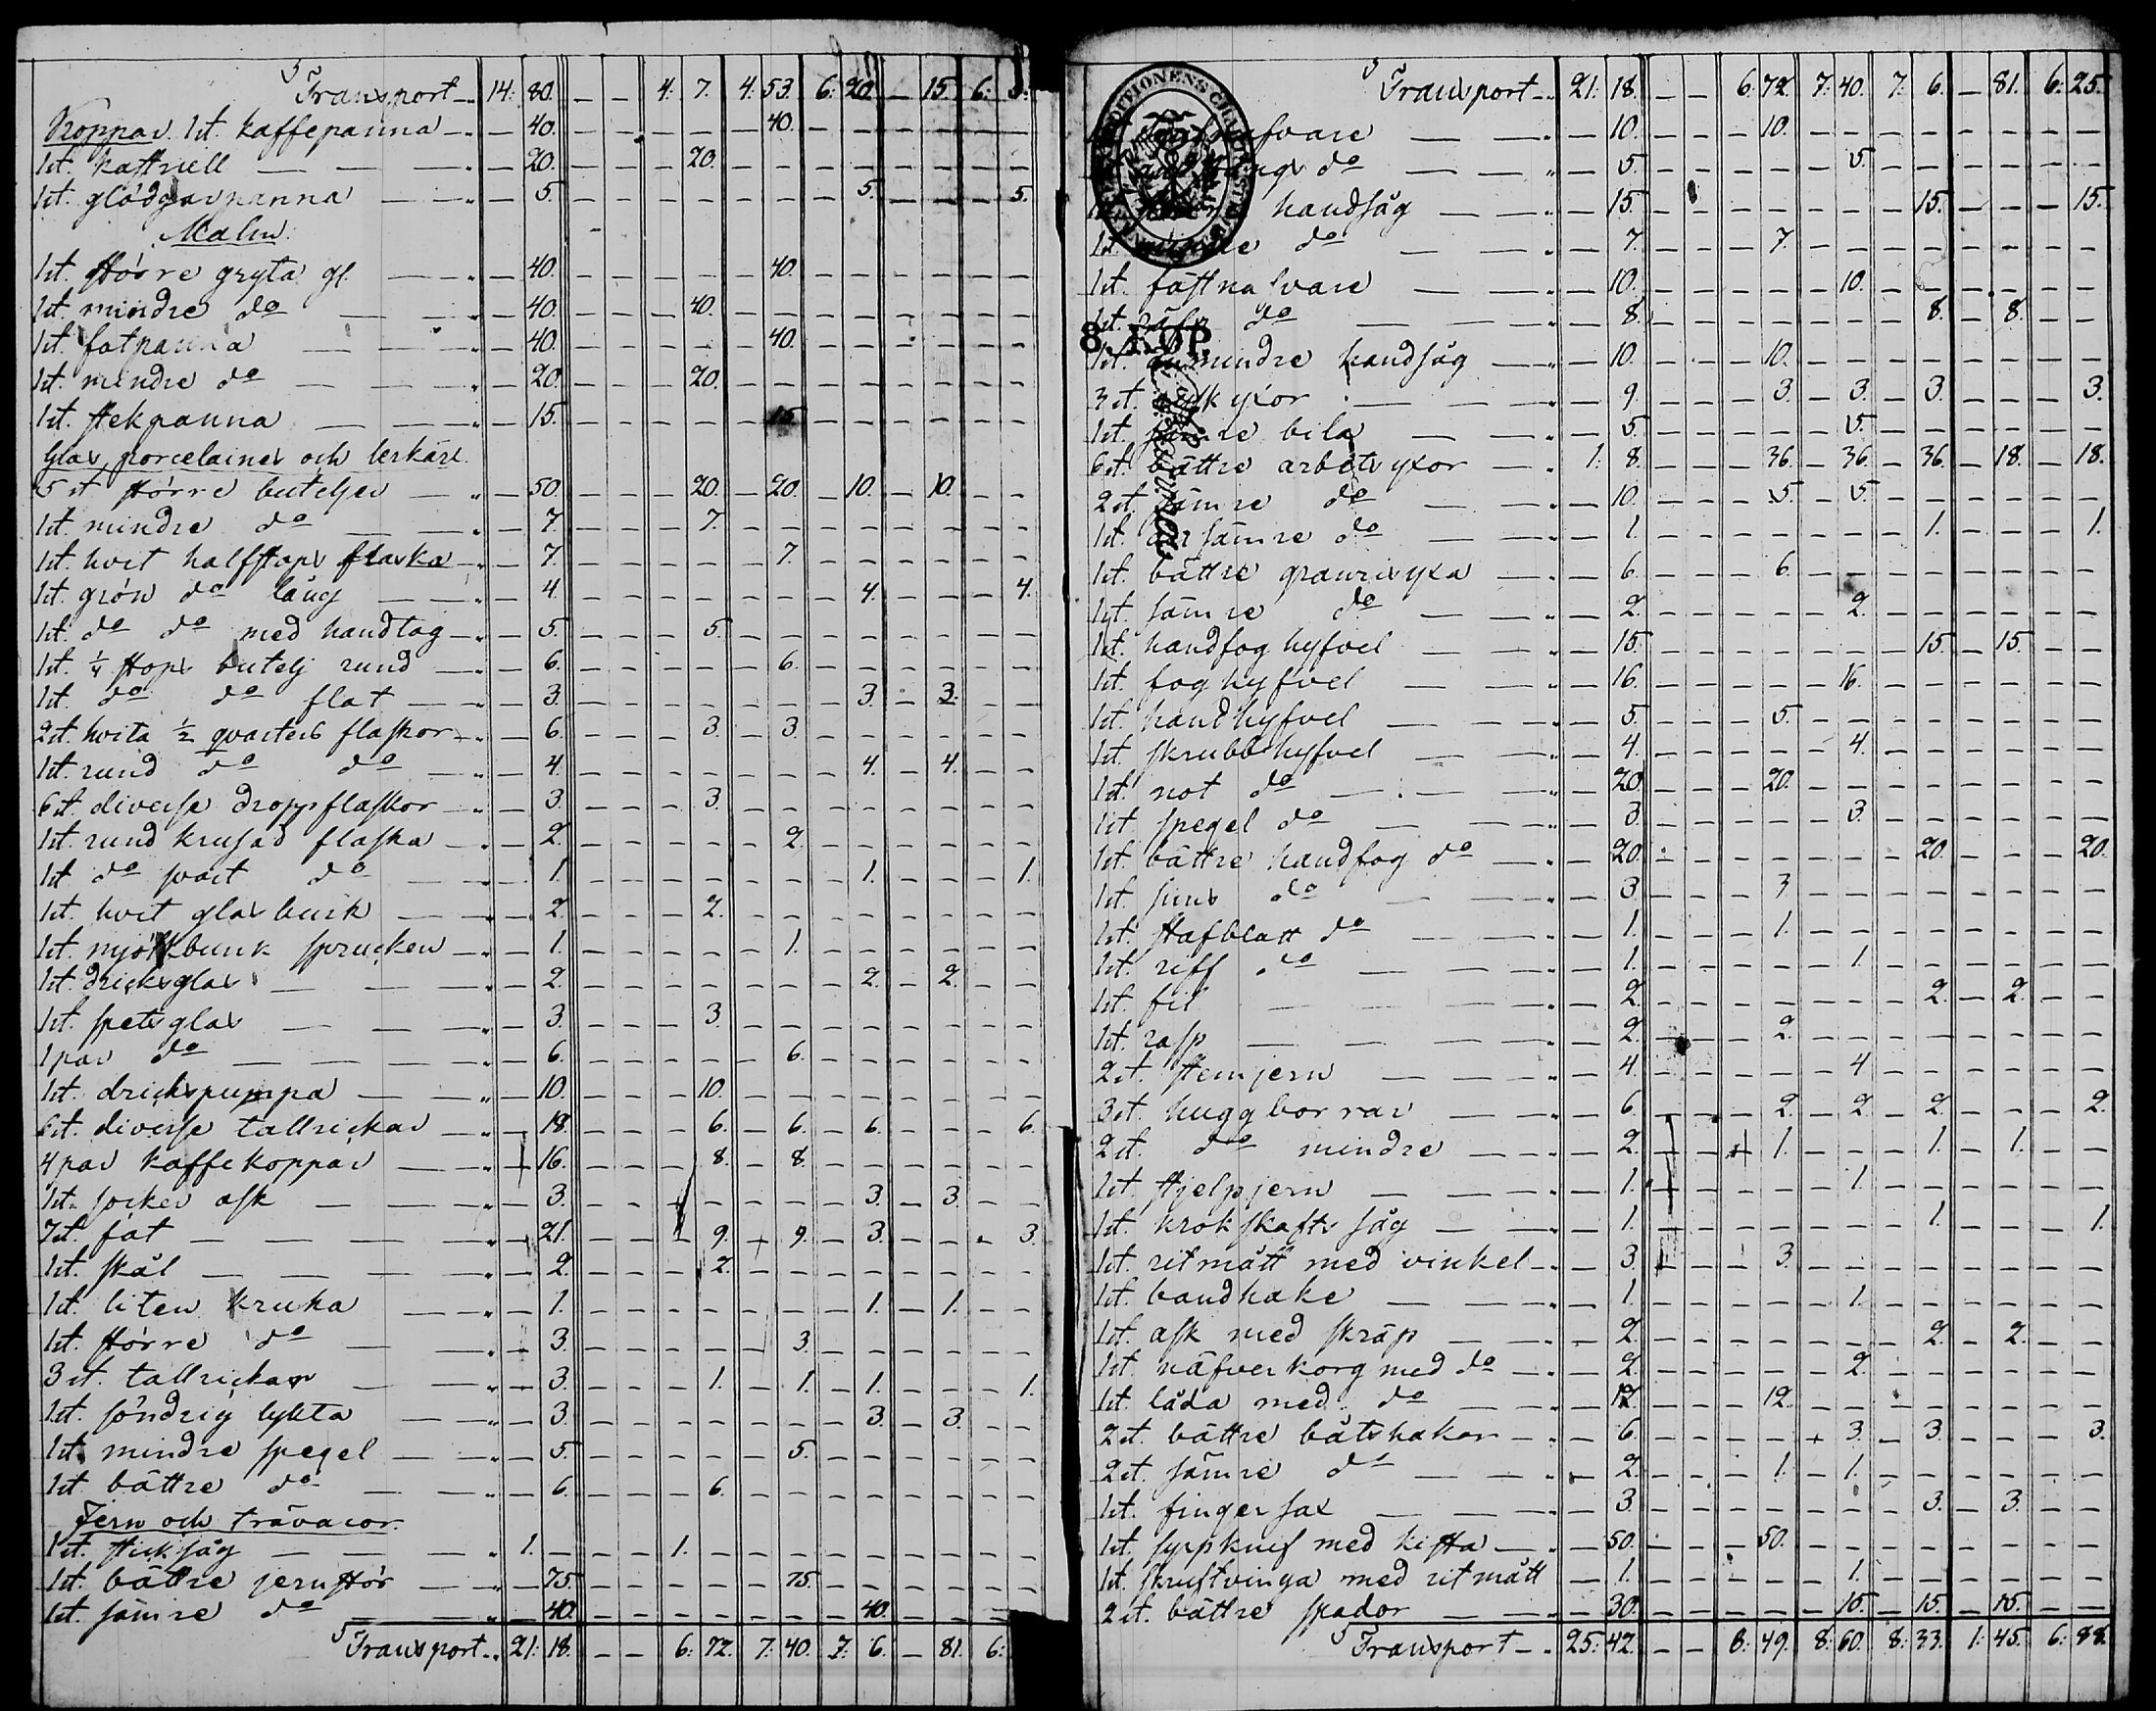 Transport 14: 80. – – 4: 7. 4: 53. 6: 20. – 15. 6:
Koppar. 1 st. kaffepanna – 40. – 40.
1 st. kastruell – 20. – 20.
1 st. glödgarpanna – 5. – 5. – 5.
Malm.
1 st. större gryta gl. – 40. – 40.
1 st. mindre do – 40. – 40.
1 st. fotpanna – 40. – 40.
1 st. mindre do – 20. – 20.
1 st. stekpanna – 15. – 15.
Glas, porcelainer och lerkäril.
5 st större buteljer – 50. – 20. – 20. – 10. – 10.
1 st. mindre do – 7. – 7.
1 st. hvit halfstops flaska – 7. – 7.
1 st. grön do lång – 4. – 4. – 4.
1 st. do do med handtag – 5. – 5.
1 st. ¼ stops butelj rund – 6. – 6.
1 st. do do flat – 3. – 3. – 3.
2 st. hvita ½ qvarters flaskor – 6. – 3. – 3.
1 st. rund do do – 4. – 4. – 4.
6 st. diverse droppflaskor – 3. – 3.
1 st. rund krusad flaska – 2. – 2.
1 st do svart do – 1. – 1. – 1.
1 st. hvit glasburk – 2. – 2.
1 st. mjölkbunk sprucken – 1. – 1.
1 st. dricksglas – 2. – 2. – 2.
1 st. spetsglas – 3. – 3.
1 par do – 6. – 6.
1 st. drickspumpa – 10. – 10.
6 st. diverse tallrickar – 18. – 6. – 6. – 6. – 6.
4 par kaffekoppar – 16. – 8. – 8.
1 st. socker ask – 3. – 3. – 3.
7 st. fat – 21. – 9. – 9. – 3. – 3.
1 st. skål – 2. – 2.
1 st. liten kruka – 1. – 1. – 1.
1 st. större do – 3. – 3.
3 st. tallrickar – 3. – 1. – 1. – 1. – 1.
1 st. söndrig lykta – 3. – 3. – 3.
1 st. mindre spegel – 5. – 5.
1 st. bättre do – 6. – 6.
Jern och trävaror.
1 st. sticksåg 1. – 1.
1 st. bättre jernstör – 75. – 75.
1 st. sämre do – 40. – 40.
Transport 21: 18. – – 6: 72. 7: 40. 7: 6. – 81. 6:
Transport 21: 18. – – 6: 72. 7: 40. 7: 6. – 81. 6: 25.
svare – 10. – 10.
do – 5. – 5.
handsåg – 15. – 15. – 15.
1 st. mindre do – 7. – 7.
1 st. fästna svare – 10. – 10.
1 st. do – 8. – 8. – 8.
8. KÖP.
1 st. mindre handsåg – 10. – 10.
3 st. yxor – 9. – 3. – 3. – 3. – 3.
1 st. sämre bila – 5. – 5.
6 st. bättre arbets yxor 1: 8. – 36. – 36. – 36. – 18. – 18.
2 st. sämre do – 10. – 5. – 5.
1 st. sämre do – 1. – 1. – 1.
1 st. bättre granrisyxa – 6. – 6.
1 st. sämre do – 2. – 2.
1 st. handfog hyfvel – 15. – 15. – 15.
1 st. foghyfvel – 16. – 16.
1 st. handhyfvel – 5. – 5.
1 st. skrubbhyfvel – 4. – 4.
1 st. not do – 20. – 20.
1 st spegel do – 3. – 3.
1 st bättre handfog do – 20. – 20. – 20.
1 st. sims do – 3 – 3
1 st. stafblatt do – 1. – 1.
1 st. riff do – 1. – 1.
1 st. fil – 2. – 2. – 2.
1 st. rasp – 2. – 2.
2 st. stemjern – 4. – 4
3 st. huggborrar – 6. – 2. – 2. – 2. – 2.
2 st. do mindre – 2. – 1. – 1. – 1.
1 st. stjelpjern – 1. – 1.
1 st. krokskafts såg – 1. – 1. – 1.
1 st. ritmått med vinkel – 3. – 3.
1 st. bandhake – 1. – 1.
1 st. ask med skräp – 2. – 2. – 2.
1 st. näfverkorg med do – 2. – 2.
1 st. låda med do – 12. – 12.
2 st. bättre båtshakar – 6. – 3. – 3. – 3.
2 st. sämre do – 2. – 1. – 1.
1 st. fingersax – 3. – 3. – 3.
1 st. med kista – 50. – 50.
1 st. skruftvinga med ritmått – 1. – 1.
2 st. bättre spador – 30. – 15. – 15. – 15.
Transport 25: 42. – – 8: 49. 8: 60. 8: 33. 1: 45. 6: 88.